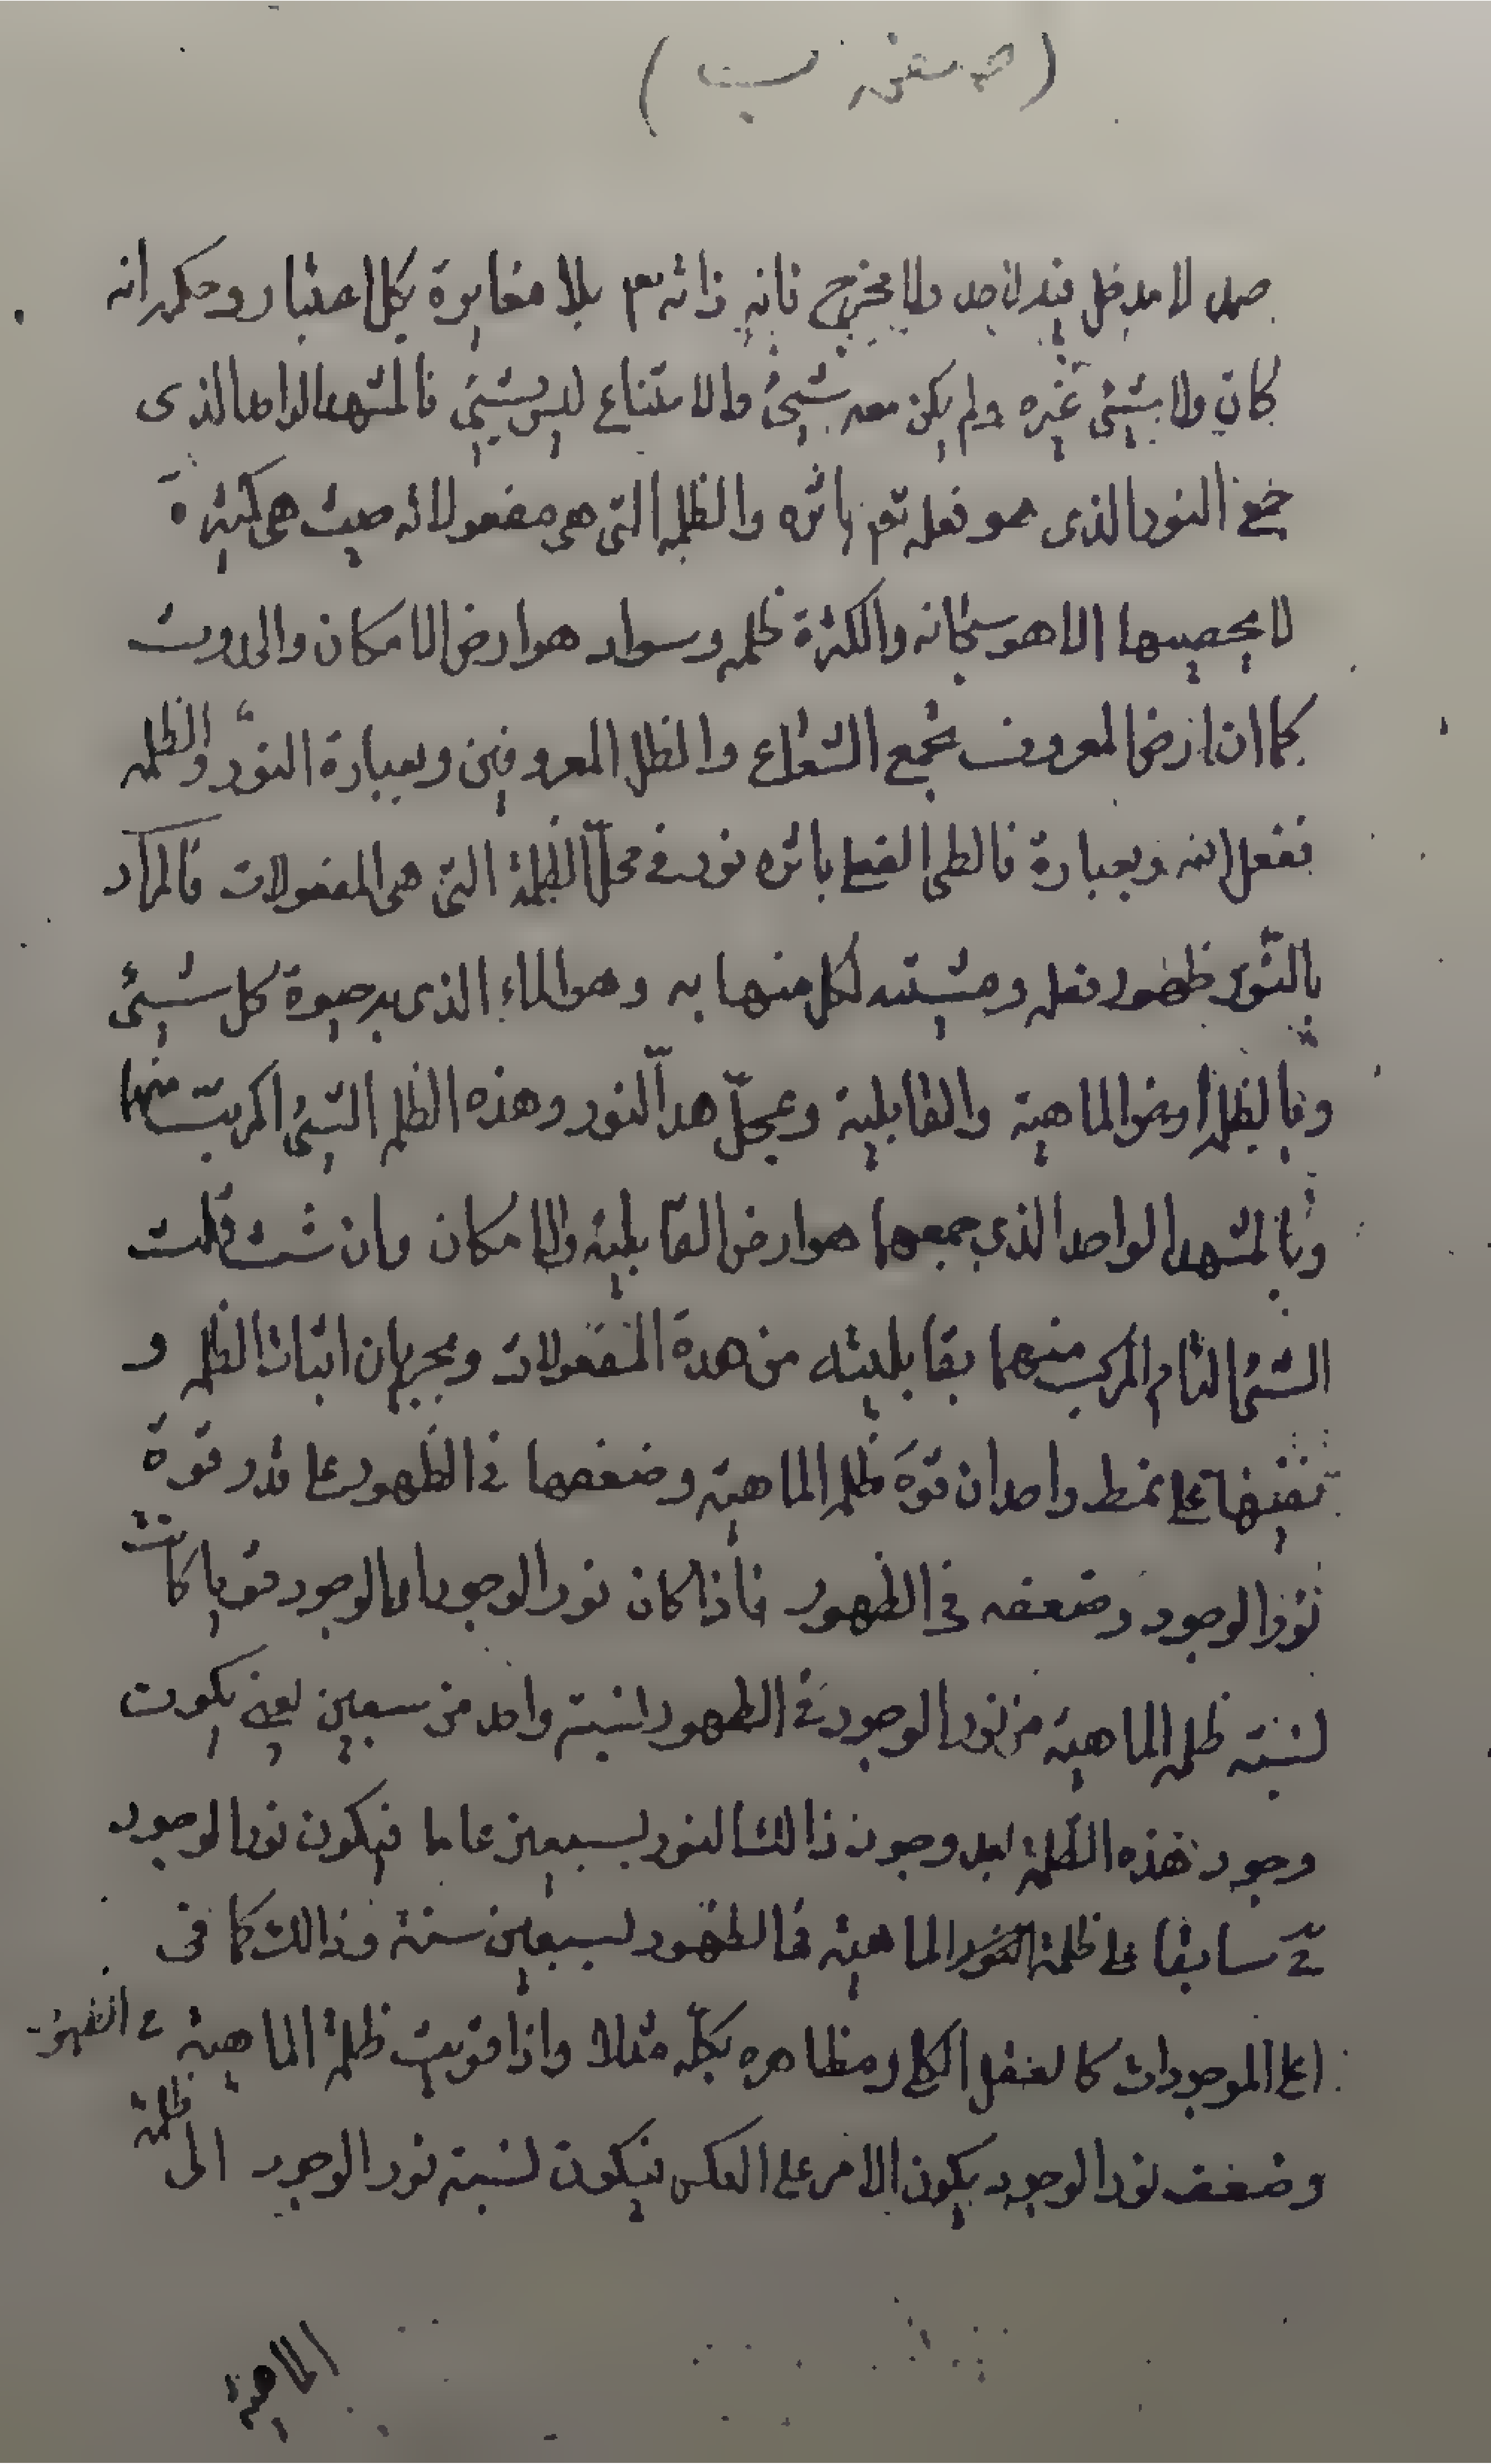 صمد لا مدخل فيه لاحد ولا مخرج فانه ذاته بلا مغايرة بكل اعتبار وحكم انه
كان ولا شيئ غيره ولم يكن معه شيئ والامتناع ليس بشيئ فالمشهد الواحد الذى
جمع النور الذى هو فعله باثره والظلمه التى هى مفعولاته حيث هى كثيرة
لا يحصيها الا هو سبحانه والكثرة ظلمه وسواد هو ارض الامكان والحدوث
كما ان ارض المعروف تجمع الشعاع والظل المعروفين وبعبارة النور والظلمه
ففعل الله وبعبارة باثره نور فى محل الظلمة التى هى المفعولات فالمراد
بالنور ظهور فعله ومشيته لكل منها به وهو الماء الذى به حيوة كل شيئ
وبالظلمة الماهية والقابلية هذا النور وهذه الظلمه الشيئ المركب منهما
وبالمشهد الواحد الذى جمعهما هو ارض القابليه والامكان وان شئت قلت
الشئ التام المركب منهما بقابليته من هذه المفعولات ويجريان اثبات الظلمه و
نفيها على نمط واحد ان قوة ظلمه الماهية وضعفها فى الظهور على قدر قوة
نور الوجود وضعفه فى الظهور فاذا كان نور الوجود قويا كانت
نسبته ظلمه الماهية من نور الوجود فى الظهور نسبة واحد من سبعين يعنى يكون
وجود هذه الظلمة بعد وجود ذالك النور بسبعين عاما فيكون نور الوجود
سابقا على ظلمة الماهية فى الظهور بسبعين سنة وذالك كما فى
اعلى الموجودات كالعقل الكلى ومظاهره بكله مثلا واذا قويت ظلمة الماهية فى الظهور
وضعف نور الوجود يكون الامر على العكس فيكون نسبة نور الوجود الى ظلمة
الماهية